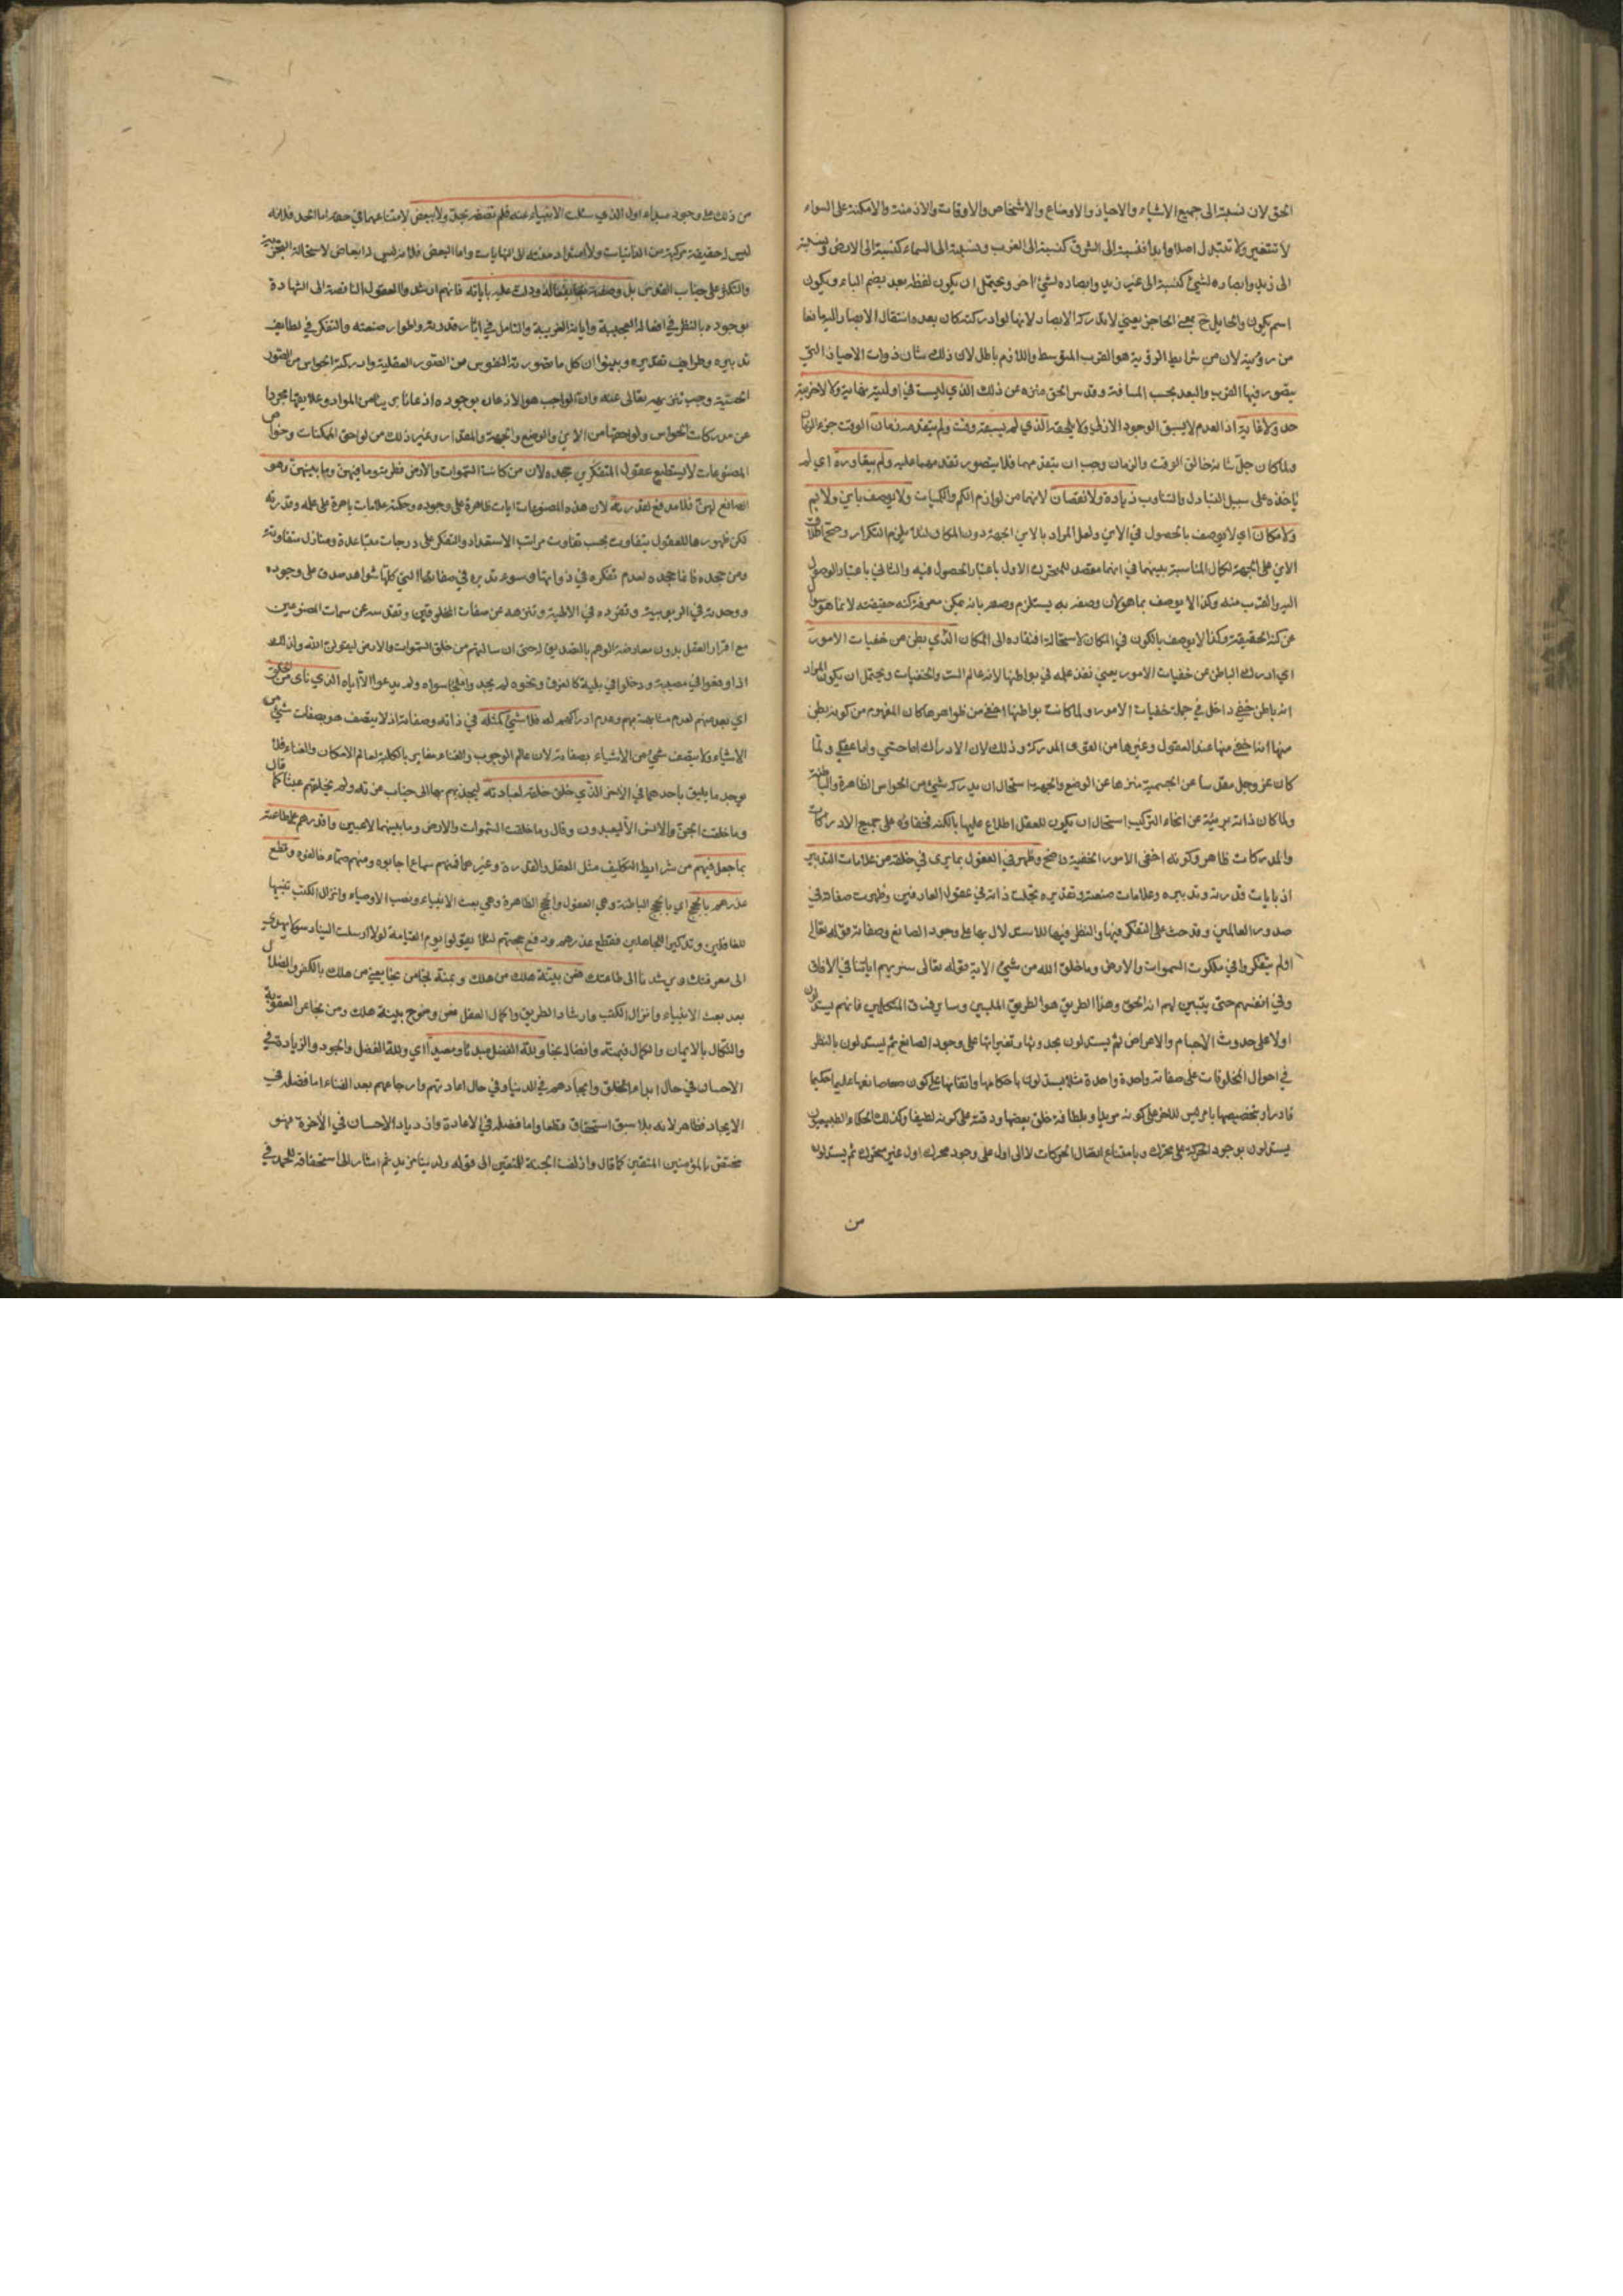 الحق لان نسبته الى جميع الاشياء والاحياز والاوضاع والاشخاص والاوقات والازمنة والامكنة على السواء
لا تتغير ولا تتبدل اصلا وابدا فنسبته الى الشرق كنسبته الى الغرب ونسبته الى السماء كنسبته الى الارض ونسبته
الى زيد وابصاره لشيء كنسبته الى غير زيد وابصاره لشيء اخر ويحتمل ان يكون لفظ بعد بضم الباء ويكون
اسم يكون والحايل ح بمعنى الحاجز يعني لا تدركه الابصار لانها لو ادركته كان بعد وانتقال الابصار اليه مانعا
من رؤيته لان من شرايط الرؤية هو القرب المتوسط واللازم باطل لان ذلك شان ذوات الاحياز التي
يتصور فيها القرب والبعد بحسب المسافة وقدس الحق منزه عن ذلك الذي ليست في اوليته نهاية ولا لاخريته
حد ولا غاية اذ العدم لا يسبق الوجود الازلي ولا يلحقه الذي لم يسبقه وقت ولم يتقدمه زمان الوقت جزء الزمان
ولما كان جل شانه خالق الوقت والزمان وجب ان يتقدمهما فلا يتصور تقدمهما عليه ولم يتعاوره اي لم
ياخذه على سبيل التبادل والتناوب زيادة ولا نقصان لانهما من لوازم الكم والكميات ولا يوصف باين ولا بم
ولا مكان اي لا يوصف بالحصول في الاين ولعل المراد بالاين الجهة دون المكان لئلا يلزم التكرار وصح اطلاق
الاين على الجهة لكمال المناسبة بينهما في انهما مقصد للمتحرك الاول باعتبار الحصول فيه والثاني باعتبار الوصول
اليه والقرب منه وكذا لا يوصف بما هو لان وصفه به يستلزم وصفه بانه يمكن معرفة كنه حقيقته لان ما هو سؤال
عن كنه الحقيقة وكذا لا يوصف بالكون في المكان لاستحالة افتقاره الى المكان الذي بطن من خفيات الامور
اي ادرك الباطن من خفيات الامور يعني نفذ علمه في بواطنها لانه عالم السر والخفيات ويحتمل ان يكون المراد
انه باطن خفي داخل في جملة خفيات الامور ولما كانت بواطنها اخفى من ظواهرها كان المفهوم من كونه بطن
منها انه اخفى منها عند العقول وغيرها من القوى المدركة وذلك لان الادراك اما حسي واما عقلي ولما
كان عز وجل مقدسا عن الجسمية منزها عن الوضع والجهة استحال ان يدركه شيء من الحواس الظاهرة والباطنة
ولما كان ذاته بريئة عن انحاء التركيب استحال ان يكون للعقل اطلاع عليها بالكنه فخفاؤه على جميع الادراكات
والمدركات ظاهر وكونه اخفى الامور الخفية واضح وظهر في العقول بما يرى في خلقه من علامات التدبير
اذ بايات قدرته وتدبيره وعلامات صنعته وتقديره تجلت ذاته في عقول العارفين وظهرت صفاته في
صدور العالمين وقد حث على التفكر فيها والنظر فيها للاستدلال بها على وجود الصانع وصفاته قوله تعالى
اولم يتفكروا في ملكوت السموات والارض وما خلق الله من شيء الاية وقوله تعالى سنريهم اياتنا في الافاق
وفي انفسهم حتى يتبين لهم انه الحق وهذا الطريق هو الطريق المليين وساير فرق المتكلمين فانهم يستدلون
اولا على حدوث الاجسام والاعراض ثم يستدلون بحدوثها وتغيراتها على وجود الصانع ثم يستدلون بالنظر
في احوال المخلوقات على صفاته واحدة واحدة مثلا يستدلون باحكامها واتقانها على كون صانعها عليما حكيما
قادرا وبتخصيصها بامر ليس للاخر على كونه مريدا وبلطافة خلق بعضها ودقته على كونه لطيفا وكذلك الحكماء الطبيعيون
يستدلون بوجود الحركة على محرك وبامتناع اتصال الحركات لا الى اول على وجود محرك اول غير متحرك ثم يستدلون
من
من ذلك على وجود مبداء اول الذي سئلت الانبياء عنه فلم تصفه بحد ولا ببعض لامتناعهما في حقه اما الحد فلانه
ليس له حقيقة مركبة من الذاتيات ولا امتداد منته الى النهايات واما البعض فلانه ليس له ابعاض لاستحالة التجزية
والتكثر على جناب القدس بل وصفته بفعاله ودلت عليه باياته فانهم ارشدوا العقول الناقصة الى الشهادة
بوجوده بالنظر في افعاله العجيبة واياته الغريبة والتامل في اثار قدرته واطوار صنعته والتفكر في لطايف
تدبيره وطرايف تقديره وبينوا ان كل ما تصورته النفوس من الصور العقلية وادركته الحواس من الصور
الحسية وجب تنزيهه تعالى عنه وان الواجب هو الاذعان بوجوده اذعانا بريئا من المواد وعلايقها مجردا
عن مدركات الحواس ولواحقها من الاين والوضع والجهة والمقدار وغير ذلك من لواحق الممكنات وخواص
المصنوعات لا يستطيع عقول المتفكرين جحده لان من كانت السموات والارض فطرته وما فيهن وما بينهن وهو
الصانع لهن فلا مدفع لقدرته لان هذه المصنوعات ايات ظاهرة على وجوده وحكمته علامات باهرة على علمه وقدرته
لكن ظهورها للعقول يتفاوت بحسب تفاوت مراتب الاستعداد والتفكر على درجات متباعدة ومنازل متفاوتة
ومن جحده فانما جحده لعدم تفكره في ذواتها وسوء تدبره في صفاتها التي كلها شواهد صدق على وجوده
ووحدته في الربوبية وتفرده في الالهية وتنزهه عن صفات المخلوقين وتقدسه عن سمات المصنوعين
مع اقرار العقل بدون معارضة الوهم بالتصديق له حتى ان سالتهم من خلق السموات والارض ليقولن الله ولذلك
اذا وقعوا في مصيبة ودخلوا في بلية كالغرق ونحوه لم يجدوا ملجأ سواه ولم يدعوا الا اياه الذي ناى من الخلق
اي بعد منهم لعدم مشابهته بهم وعدم ادراكهم له فلا شيء كمثله في ذاته وصفاته اذ لا يتصف هو بصفات شيء من
الاشياء ولا يتصف شيء من الاشياء بصفاته لان عالم الوجوب والغناء مغاير بالكلية لعالم الامكان والفناء فلا
يوجد ما يليق باحدهما في الاخر الذي خلق خلقه لعبادته ليجذبهم بها الى جناب عزته ولم يخلقهم عبثا كما قال
وما خلقت الجن والانس الا ليعبدون وقال وما خلقت السموات والارض وما بينهما لاعبين واقدرهم على طاعته
بما جعل فيهم من شرايط التكليف مثل العقل والقدرة وغيرهما فمنهم سماع اجابوه ومنهم صماء خالفوه وقطع
عذرهم بالحجج اي بالحجج الباطنة وهي العقول والحجج الظاهرة وهي بعث الانبياء ونصب الاوصياء وانزال الكتب تنبيها
للغافلين وتذكيرا للجاهلين فقطع عذرهم ودفع حجتهم لئلا يقولوا يوم القيامة لولا ارسلت الينا رسولا يهدي
الى معرفتك ويرشدنا الى طاعتك فعن بينة هلك من هلك وبمنه نجا من نجا يعني من هلك بالكفر والضلال
بعد بعث الانبياء وانزال الكتب وارشاد الطريق واكمال العقل فعن وضوح بينة هلك ومن نجا عن العقوبة
والنكال بالايمان والكمال فبمنه وافضاله نجا ولله الفضل مبدئا ومعيدا اي ولله الفضل والجود والزيادة في
الاحسان في حال ابداء الخلق وايجادهم في الدنيا وفي حال اعادتهم وارجاعهم بعد الفناء اما فضله في
الايجاد فظاهر لانه بلا سبق استحقاق قطعا واما فضله في الاعادة وازدياد الاحسان في الاخرة فهو
مختص بالمؤمنين المتقين كما قال وازلفت الجنة للمتقين الى قوله ولدينا مزيد ثم اشار الى استحقاقه للحمد في